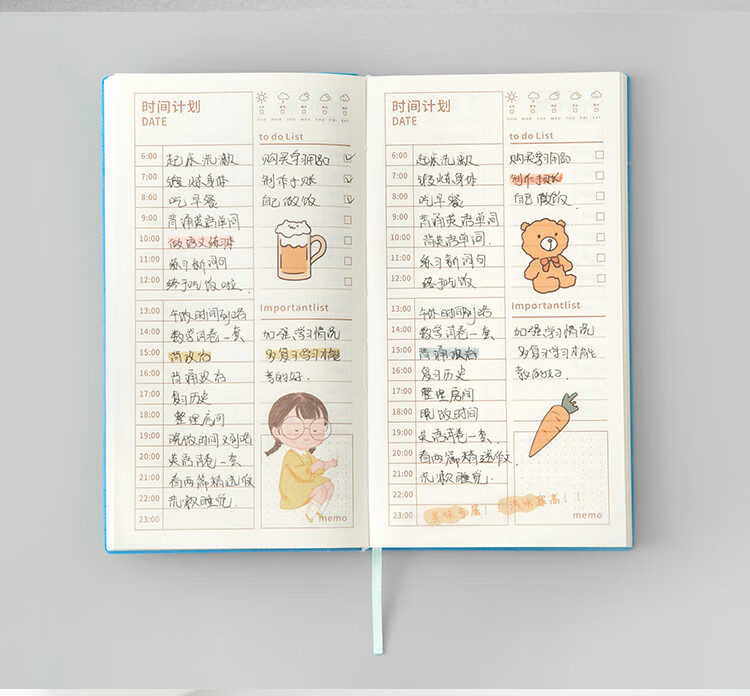 时间计划
DATE
SUN MON TUE WED THU FRI SAT
to do List
6:00 起床洗漱
7:00 锻炼身体
8:00 吃早餐
9:00 背诵英语单词
10:00 做语文练习本
11:00 练习新词句
12:00 终于吃饭啦
购买学习用品
制作手账
自己做饭
13:00 午休时间到咯
14:00 数学试卷一套
15:00 背政治
16:00 背诵政治
17:00 复习历史
18:00 整理房间
19:00 晚饭时间又到咯
20:00 英语试卷一套
21:00 看两篇精选仿
22:00 洗漱睡觉.
23:00
Importantlist
加强学习情况
多复习学习才能
考的好.
memo
时间计划
DATE
SUN MON TUE WED THU FRI SAT
to do List
6:00 起床洗漱
7:00 锻炼身体
8:00 吃早餐
9:00 背诵英语单词
10:00 背英语单词.
11:00 练习新词句
12:00 终于吃饭
购买学习用品
制作手账
自己做饭
13:00 午休时间到咯
14:00 数学试卷一套
15:00 背诵政治
16:00 复习历史
17:00 整理房间
18:00 晚饭时间
19:00 英语试卷一套.
20:00 看两篇精选仿.
21:00 洗漱睡觉.
22:00
23:00
Importantlist
加强学习情况
多复习学习才能
美味专属!
memo